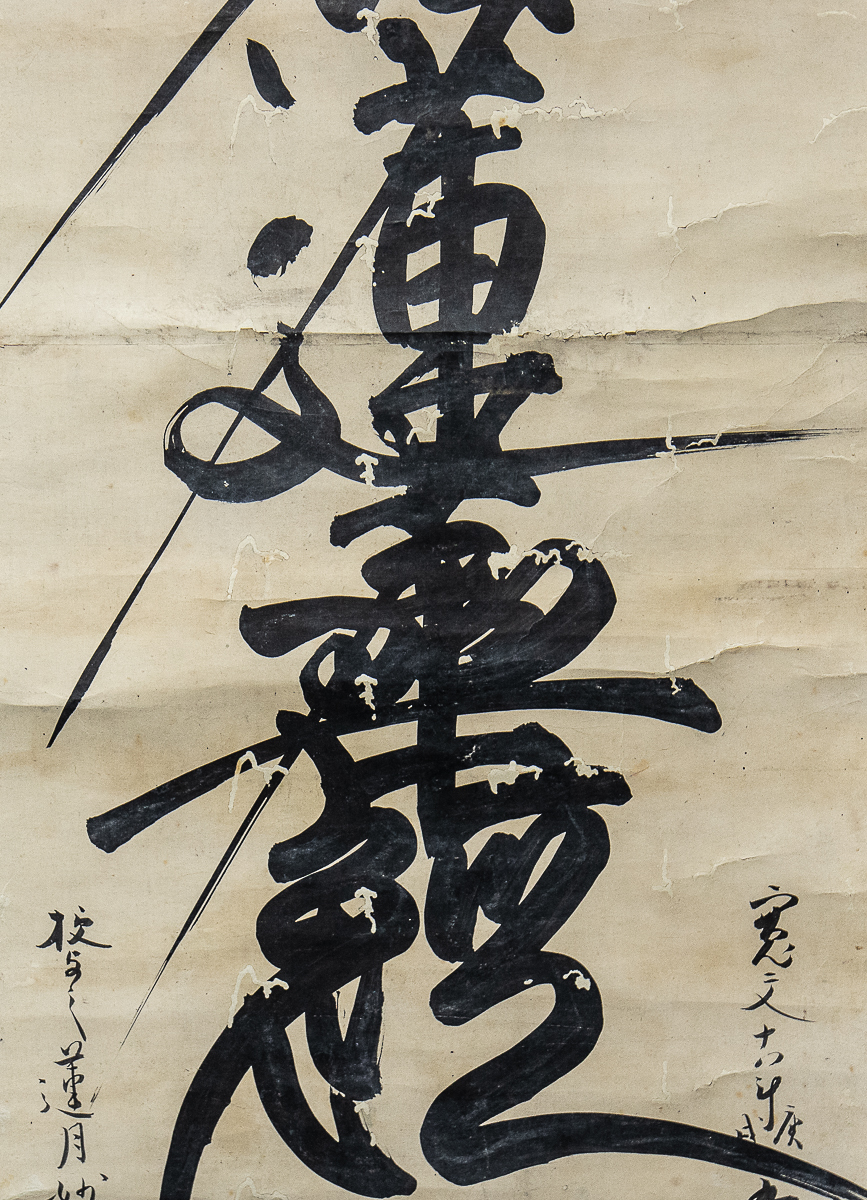 寛文十年庚戌
法蓮華經
授与之蓮月妙